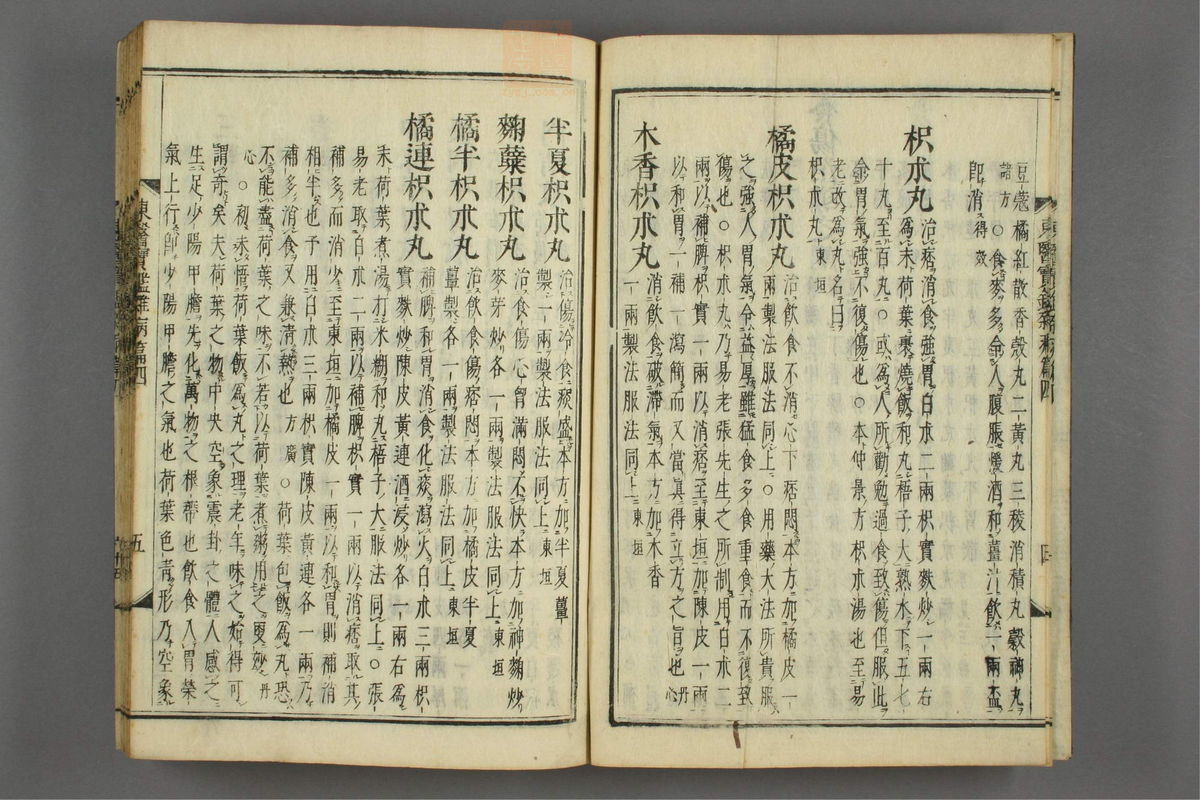 東醫寶鑑雜病篇四
豆蔲橘紅散香殼丸二黃丸三稜消積丸穀神丸
諸方○食麥多令人腹脹煖酒和薑汁飮一兩盃
卽消得效
枳朮丸治痞消食強胃白朮二兩枳實麩炒一兩右
爲末荷葉裹燒飯和丸梧子大熟水下五七
十丸至百丸○或爲人所勸勉過食致傷但服此
令胃氣強不復傷也○本仲景方枳朮湯也至易
老改爲丸名曰
枳朮丸東垣
橘皮枳朮丸治飮食不消心下痞悶本方加橘皮一
兩製法服法同上○用藥大法所貴服
之強人胃氣令益厚雖猛食多食重食而不復致
傷也○枳朮丸乃易老張先生之所制用白朮二
兩以補脾枳實一兩以消痞至東垣加陳皮一兩
以和胃一補一瀉簡而又當眞得立方之旨也丹心
木香枳朮丸消飮食破滯氣本方加木香
一兩製法服法同上東垣
四
半夏枳朮丸治傷冷食痰盛本方加半夏薑
製二兩製法服法同上東垣
麴蘖枳朮丸治食傷心胷滿悶不快本方加神麴炒
麥芽炒各一兩製法服法同上東垣
橘半枳朮丸治飮食傷痞悶本方加橘皮半夏
薑製各一兩製法服法同上東垣
橘連枳朮丸補脾和胃消食化痰瀉火白朮三兩枳
實麩炒陳皮黃連酒浸炒各一兩右爲
末荷葉煮湯打米糊和丸梧子大服法同上○張
易老取白朮二兩以補脾枳實一兩以消痞取其
補多而消少至東垣加橘皮一兩以和胃則補消
相半也予用白朮三兩枳實陳皮黃連各一兩乃
補多消食又兼淸熱也方廣○荷葉包飯爲丸恐
不能盡荷葉之味不若以荷葉煮粥用之更妙丹
心○初未悟荷葉飯爲丸之理老年味之始得可
謂奇矣夫荷葉之物中央空象震卦之體人感之
生足少陽甲膽先化萬物之根蒂也飮食入胃榮
氣上行卽少陽甲膽之氣也荷葉色靑形乃空象
東醫寶鑑雜病篇四
五